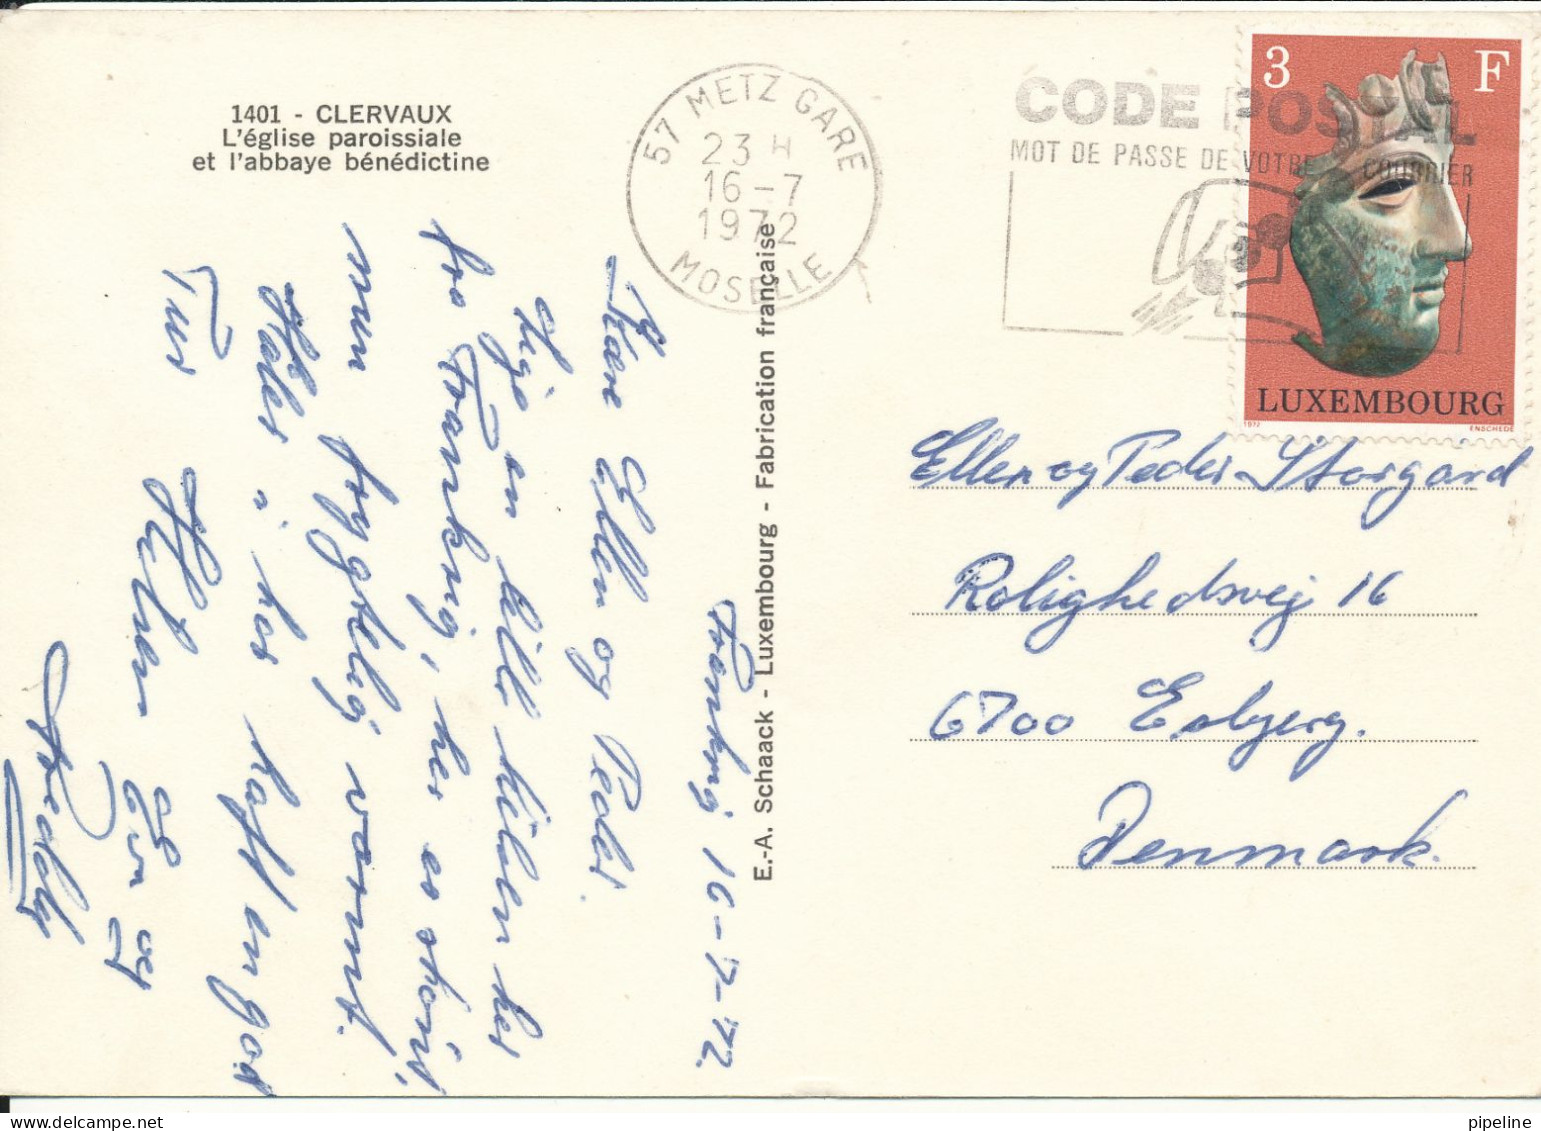 1401 - CLERVAUX
L'église paroissiale
et l'abbaye bénédictine
57 METZ GARE
23 H
16-7
1972
MOSELLE
CODE POSTAL
MOT DE PASSE DE VOTRE COURRIER
3 F
LUXEMBOURG
1972 ENSCHEDE
E.-A. Schaack - Luxembourg - Fabrication française
Frankrig 16-7-'72
Kære Ellen og Peder.
Lige en lille hilsen her
fra Frankrig, her er
men varmt.
Håber i har haft en god
Tur
Hilsen
og
Freddy
Ellen og Peder Storgard
Rolighedsvej 16
6700 Esbjerg.
Denmark.
pipeline